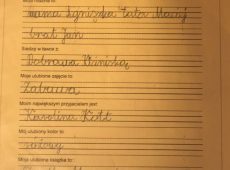 Moja rodzina to:
mama Agnieszka tata Maciej
brat Jan
Siedzę w ławce z:
Dobrawą
Moje ulubione zajęcie to:
Zabawa
Moim największym przyjacielem jest:
Karolina Kott
Mój ulubiony kolor to:
różowy
Moja ulubiona książka to: